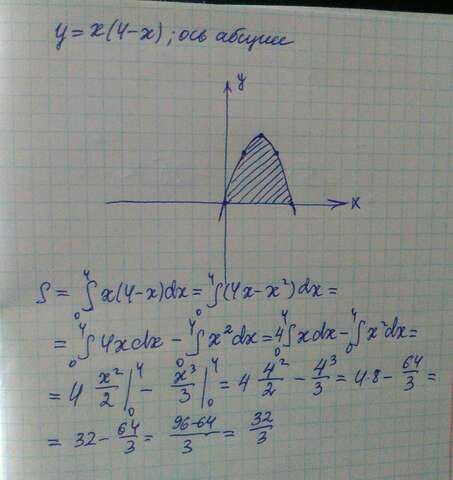 y = x(4-x); ось абсцисс
y
x
S = ₀∫⁴ x(4-x)dx = ₀∫⁴ (4x-x²)dx =
= ₀∫⁴ 4xdx - ₀∫⁴ x²dx = 4 ₀∫⁴ xdx - ₀∫⁴ x²dx =
= 4 x²/2 |₀⁴ - x³/3 |₀⁴ = 4 4²/2 - 4³/3 = 4·8 - 64/3 =
= 32 - 64/3 = (96-64)/3 = 32/3